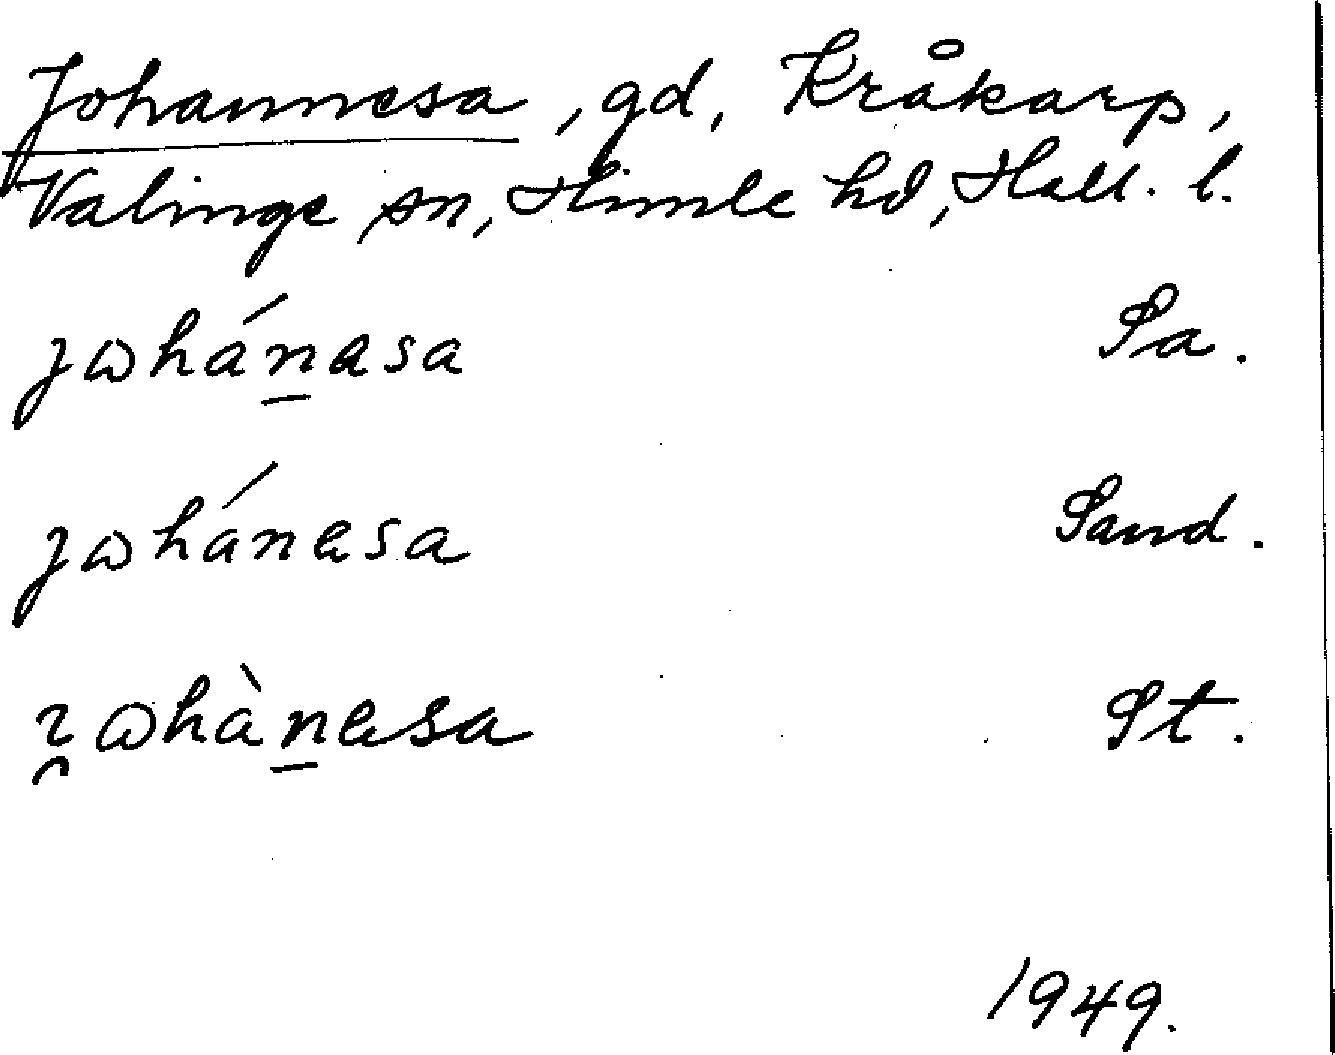 Johannesa, gd, Kråkarp,
Valinge sn, Himle hd, Hall. l.
jωhánasa Sa.
jωhánasa Sand.
ωhànasa St.
1949.